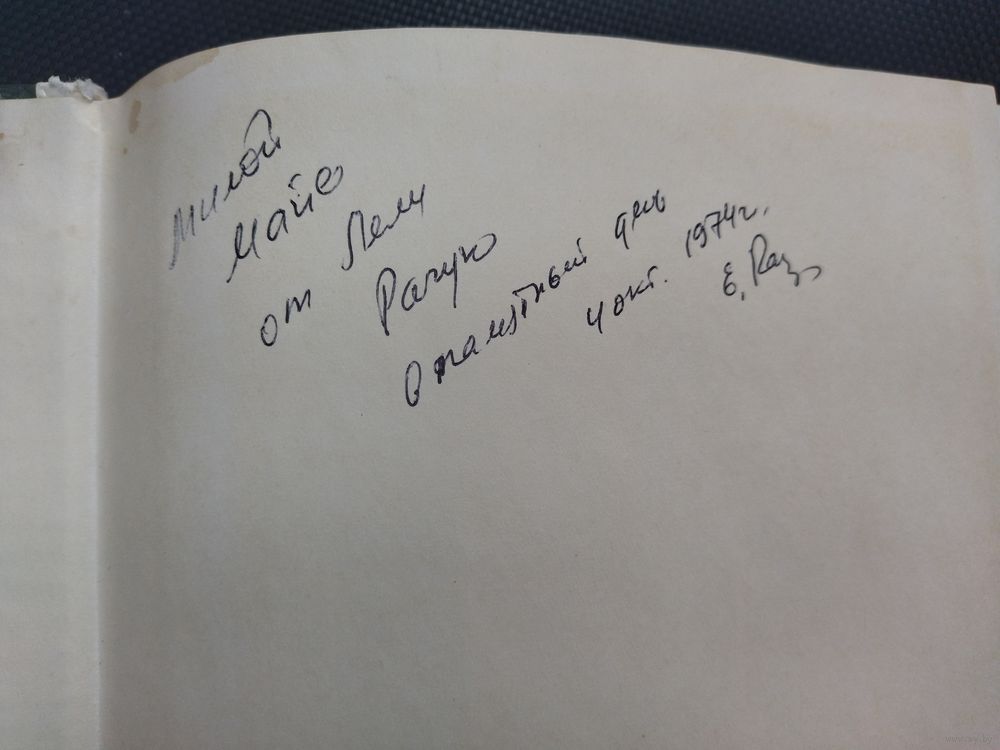 Милой
Майе
от Лели
Рачук
В памятный день
4 окт. 1974г.
Е. Рач